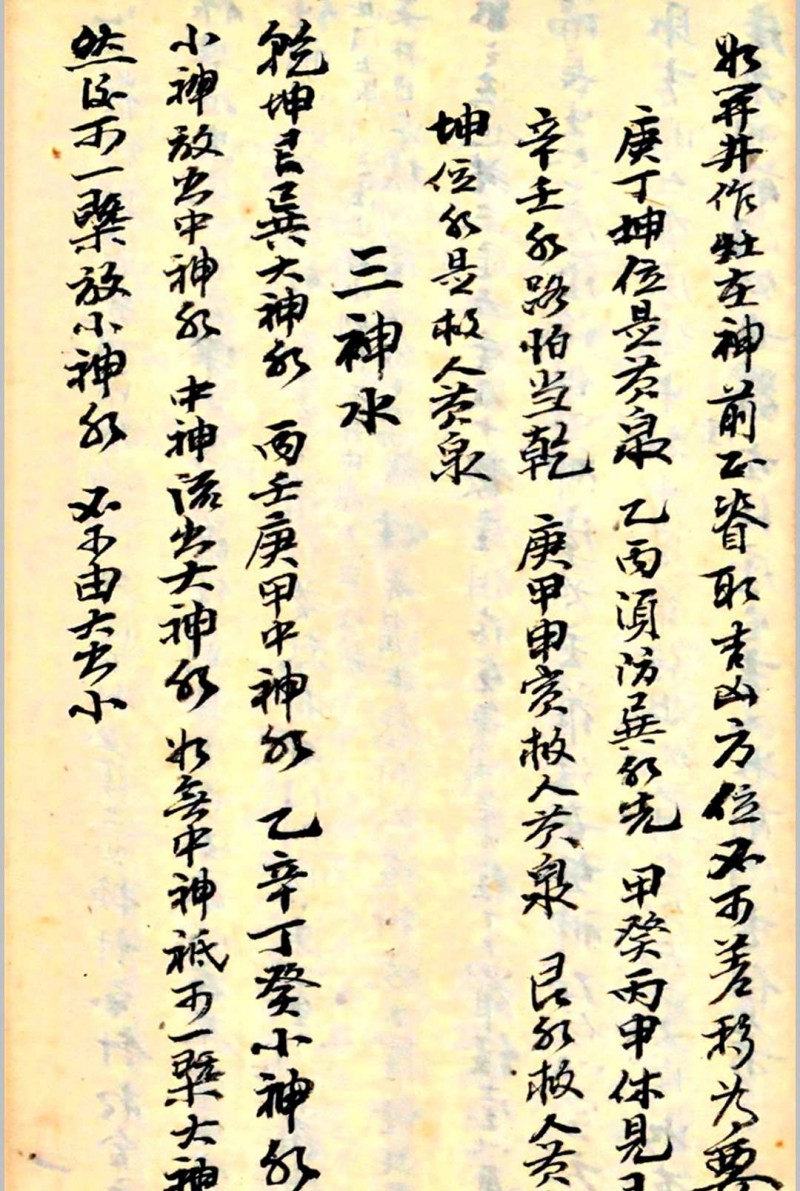 如开井作灶在神前正脊取吉凶方位不可差移为要
庚丁坤位是黄泉 乙丙須防巽水先 甲癸丙申休見
辛壬水路怕当乾 庚甲申寅救人黄泉 艮水救人黄
坤位水是救人黄泉
三神水
乾坤艮巽大神水 丙壬庚甲中神水 乙辛丁癸小神水
小神放出中神水 中神流出大神水 如無中神祗可一槩大神
然後可一槩放小神水 必不由大出小